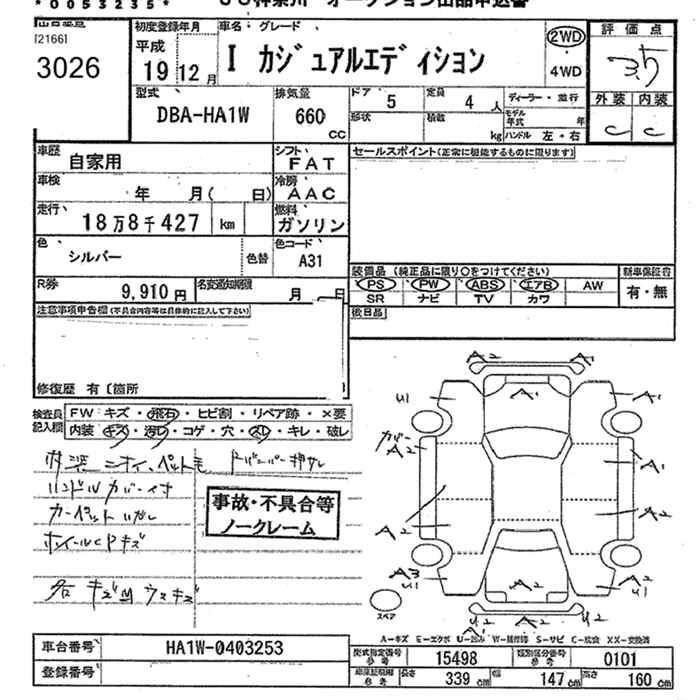 *0053235*
JU神奈川 オークション出品申込書
[2166]
3026
初度登録年月
平成
19 12月
車名・グレード
I カジュアルエディション
2WD
・
4WD
評価点
3.5
型式
DBA-HA1W
排気量
660
CC
ドア
5
定員
4 人
形状
積載
kg
ディーラー・並行
モデル年式 年
ハンドル 左・右
外装 内装
C C
車歴
自家用
シフト
FAT
セールスポイント(正常に機能するものに限ります)
車検
年 月( 日)
冷房
AAC
走行
18万8千427 km
燃料
ガソリン
色
シルバー
色替
色コード
A31
R券
9,910 円
名変通知期限
月
装備品 (純正品に限り○をつけてください)
PS PW ABS エアB AW
SR ナビ TV カワ
新車保証書
有・無
注意事項申告欄(不具合内容等は具体的に記入して下さい)
後日品
修復歴 有 〔箇所
検査員
記入欄
FW:キズ・飛石・ヒビ割・リペア跡・×要
内装 キズ・汚レ・コゲ・穴・スレ・キレ・破レ
ハンドルカバー付
ホイールCPキズ
事故・不具合等
ノークレーム
A2 A2
A1
U1
A1
カバー
A2
A1
A2
A2
A3
U1
A2
A2
U1
U2
A1
U2
スペア
A-キズ E-エクボ U-凹み W-補修跡 S-サビ C-腐食 XX-交換済
車台番号
HA1W-0403253
登録番号
型式指定番号
参考
15498
類別区分番号
参考
0101
参考
長さ
339 cm
幅
147 cm
高さ
160 cm